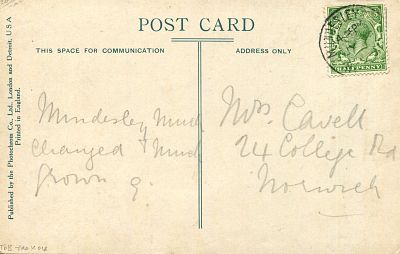 POST CARD
THIS SPACE FOR COMMUNICATION
ADDRESS ONLY
HALFPENNY
Published by the Photochrom Co., Ltd., London and Detroit, U.S.A
Printed in England.
Mundesley much
changed & much
grown
Mrs. Cavell
24 College Rd
Norwich